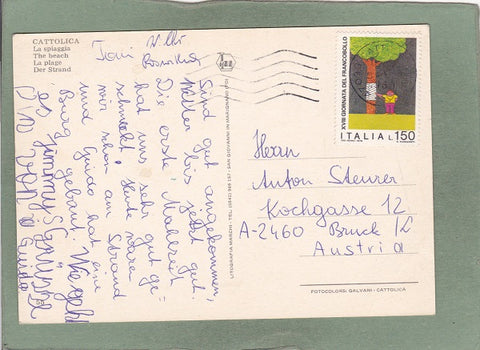 CATTOLICA
La spiaggia
The beach
La plage
Der Strand
Toni
Sind gut angekommen,
Wetter bis jetzt gut.
Die erste Mahlzeit
hat uns sehr gut ge-
schmeckt, heute waren
wir schon am Strand
und Guido hat eine
Burg gebaut. Wie geht
es
Guido
LITOGRAFIA MARCHI - TEL. (0541) - SAN GIOVANNI IN MARIGNANO (FO)
XVIII GIORNATA DEL FRANCOBOLLO
ITALIA L.150
Herrn
Anton Steurer
Kochgasse 12
A-2460 Bruck/L
Austria
FOTOCOLOR: GALVANI - CATTOLICA